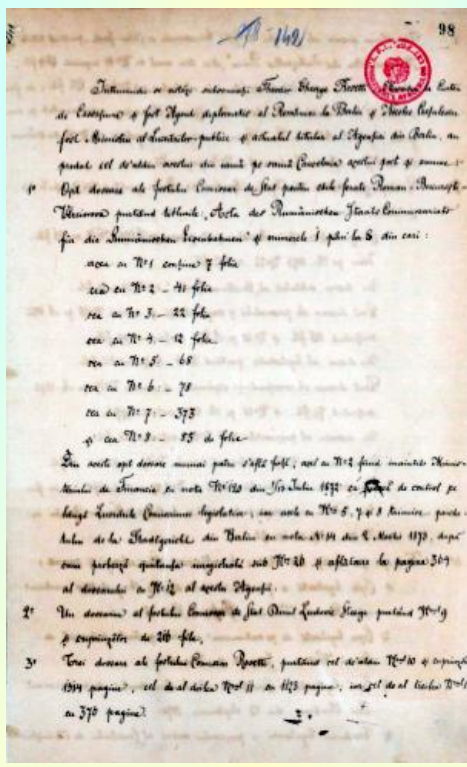 98
142
Theodor George Rosetti
de Casațiune și fost Agent diplomatic al României la Berlin și Nicolae Crețulescu
fost Ministru al Lucrărilor publice și actualul titular al Agenției din Berlin, au
predat cel de'ntâiu acestui din urmă pe Cancelaria acestui post și anume:
1º Opt dosare ale fostului Comisar de Stat pentru căile ferate Roman-București-
Vârciorova purtând titlurile „Acta des Rumänischen Staats Commissariats
für die Rumänischen Eisenbahnen" și numerile 1 până la 8 din cari:
acea cu Nº 1 conține 7 folie
cea cu Nº 2 - 41 folie
cea cu Nº 3 - 22 folie
cea cu Nº 4 - 12 folie
cea cu Nº 5 - 68
cea cu Nº 6 - 78
cea cu Nº 7 - 373
și cea Nº 8 - 85 de folie
Din aceste opt dosare numai patru s'află față, acel cu Nº 2 fiind înaintat Minis-
teriului de Finance cu nota Nº 120 din Iulie 1872 de control pe
lângă Comisiunei legislative, iar acele cu Nº 5, 7 și 8
tului de la Stadtgericht din Berlin cu nota Nº 14 din 2 Martie 1873, după
cum probează quitanța sub Nº 26 și aflătoare la pagina 369
al dosarului cu Nº 12 al acestei Agenții.
2º Un dosar al fostului Comisar de Stat Dlui Ludovic Steege purtând Nº 9
și cuprinzător de 216 file,
3º Trei dosare ale fostului Comisar Rosetti, purtând cel de'ntâiu Nº 10 și
1314 pagine, cel de al doilea Nº 11 cu 1123 pagine, iar cel de al treilea
cu 376 pagine.